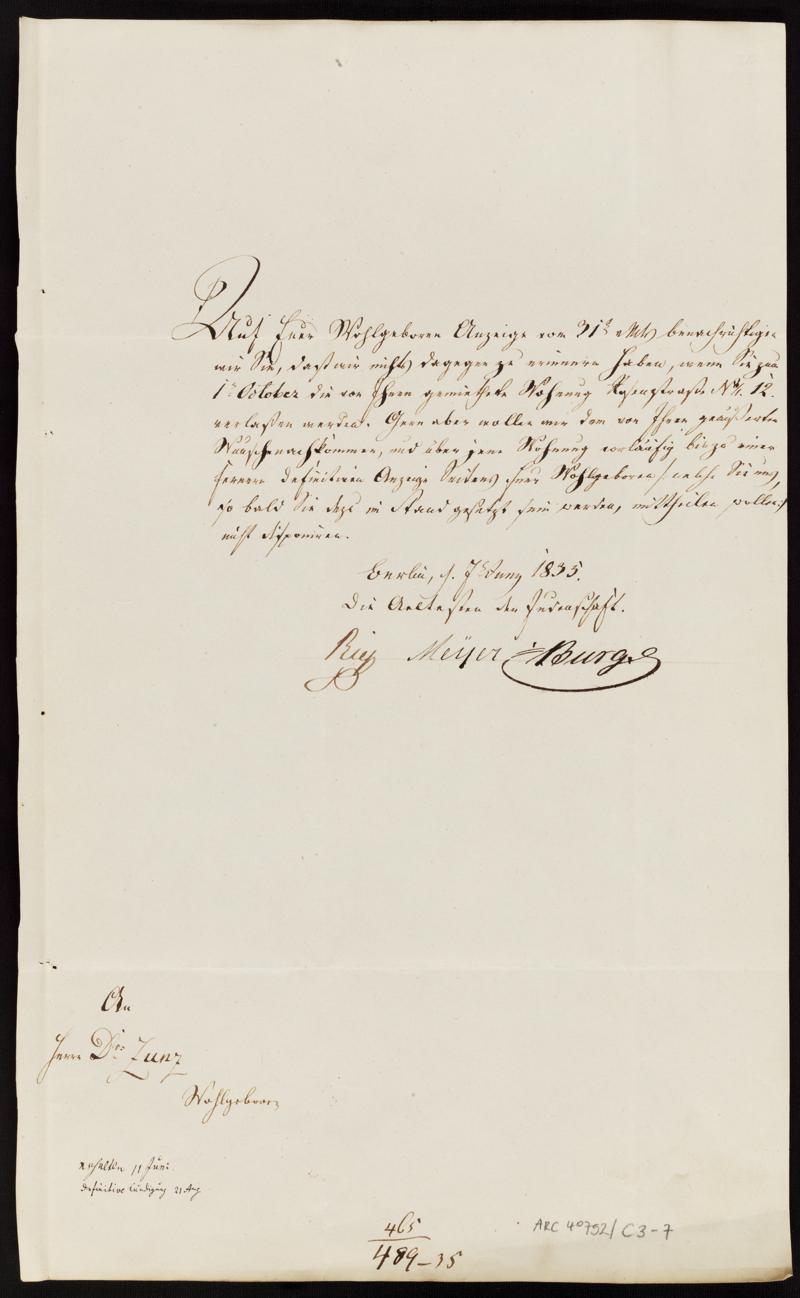 Auf Euer Wohlgeboren Anzeige vom 31t v Mts benachrichtigen
wir Sie, daß wir nichts dagegen zu erinnern haben, wenn Sie zum
1t October die von Ihnen gemiethete Wohnung Rosenstraße No 12.
verlassen werden. Gern aber wollen wir dem von Ihnen geäußerten
Wunsche nachkommen, und über jene Wohnung vorläufig bis zu einer
fernern definitiven Anzeige Seitens Euer Wohlgeboren /: welche Sie uns,
so bald Sie dazu in Stand gesetzt sein werden, mittheilen wollen :/
nicht disponiren.
Berlin, d. 7t Juny 1835.
Die Aeltesten der Judenschaft.
Rieß Meyer Burg
An
Herrn Dr Zunz
Wohlgeboren
erhalten 11 Juni
definitive Kündigung 21 Aug
465
489-35
ARC 4°792/C3-7